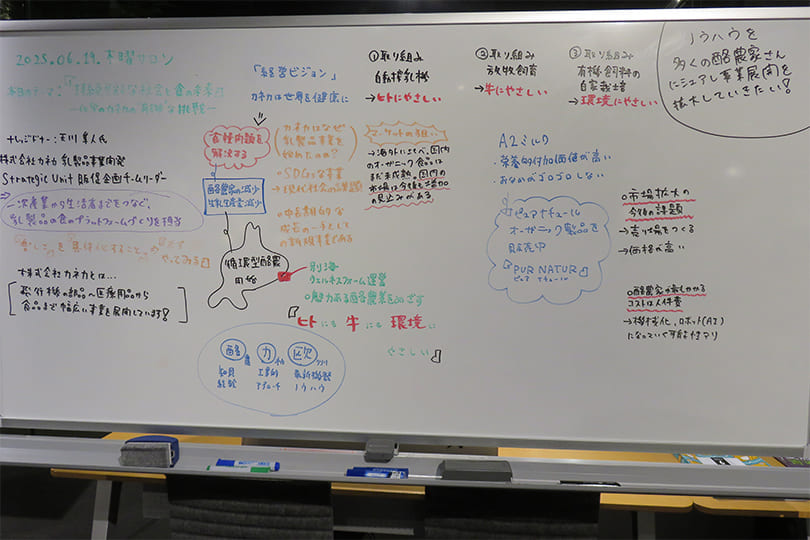 2025.06.19.木曜サロン
本日のテーマ:「持続可能な社会と食の未来へ
ナレッジドナー:
株式会社カネカ 乳製品事業開発
Strategic Unit 販促企画チームリーダー
⇒
一次産業から生活者までをつなぐ、
乳製品の食のプラットフォームづくりを担当
やってみる
株式会社カネカとは…
食品まで幅広い事業を展開しています!
「経営ビジョン」
カネカは世界を健康に
食糧問題を
解決する
酪農家の減少
生乳生産量減少
循環型酪農
開始
カネカはなぜ
乳製品事業を
始めたのか?
SDGsな事業
→現代社会への課題
中長期的な
成長の一手として
の新規事業である
マーケットの狙い
→海外にくらべ、国内
のオーガニック食品は
まだ未成熟。国内の
市場は今後も増加
の見込みがある
別海
ウェルネスファーム運営
○魅力ある酪農業をめざす
『ヒトにも 牛にも 環境に
やさしい』
酪 農
知見
経験
カ ネカ
工業的
アプローチ
欧
最新機器
ノウハウ
①取り組み
自動搾乳機
→ヒトにやさしい
②取り組み
放牧飼育
→牛にやさしい
③取り組み
有機飼料の
自家栽培
→環境にやさしい
A2ミルク
・栄養的付加価値が高い
・おなかがゴロゴロしない
ピュアナチュール
オーガニック製品を
販売中
『PUR NATUR』
ピュアナチュール
ノウハウを
多くの酪農家さん
にシェアし事業展開を
拡大していきたい!
○市場拡大の
今後の課題
→売り場をつくる
→価格が高い
○酪農家が最もかかる
コストは人件費
→機械化、ロボット(AI)
になっていく可能性アリ